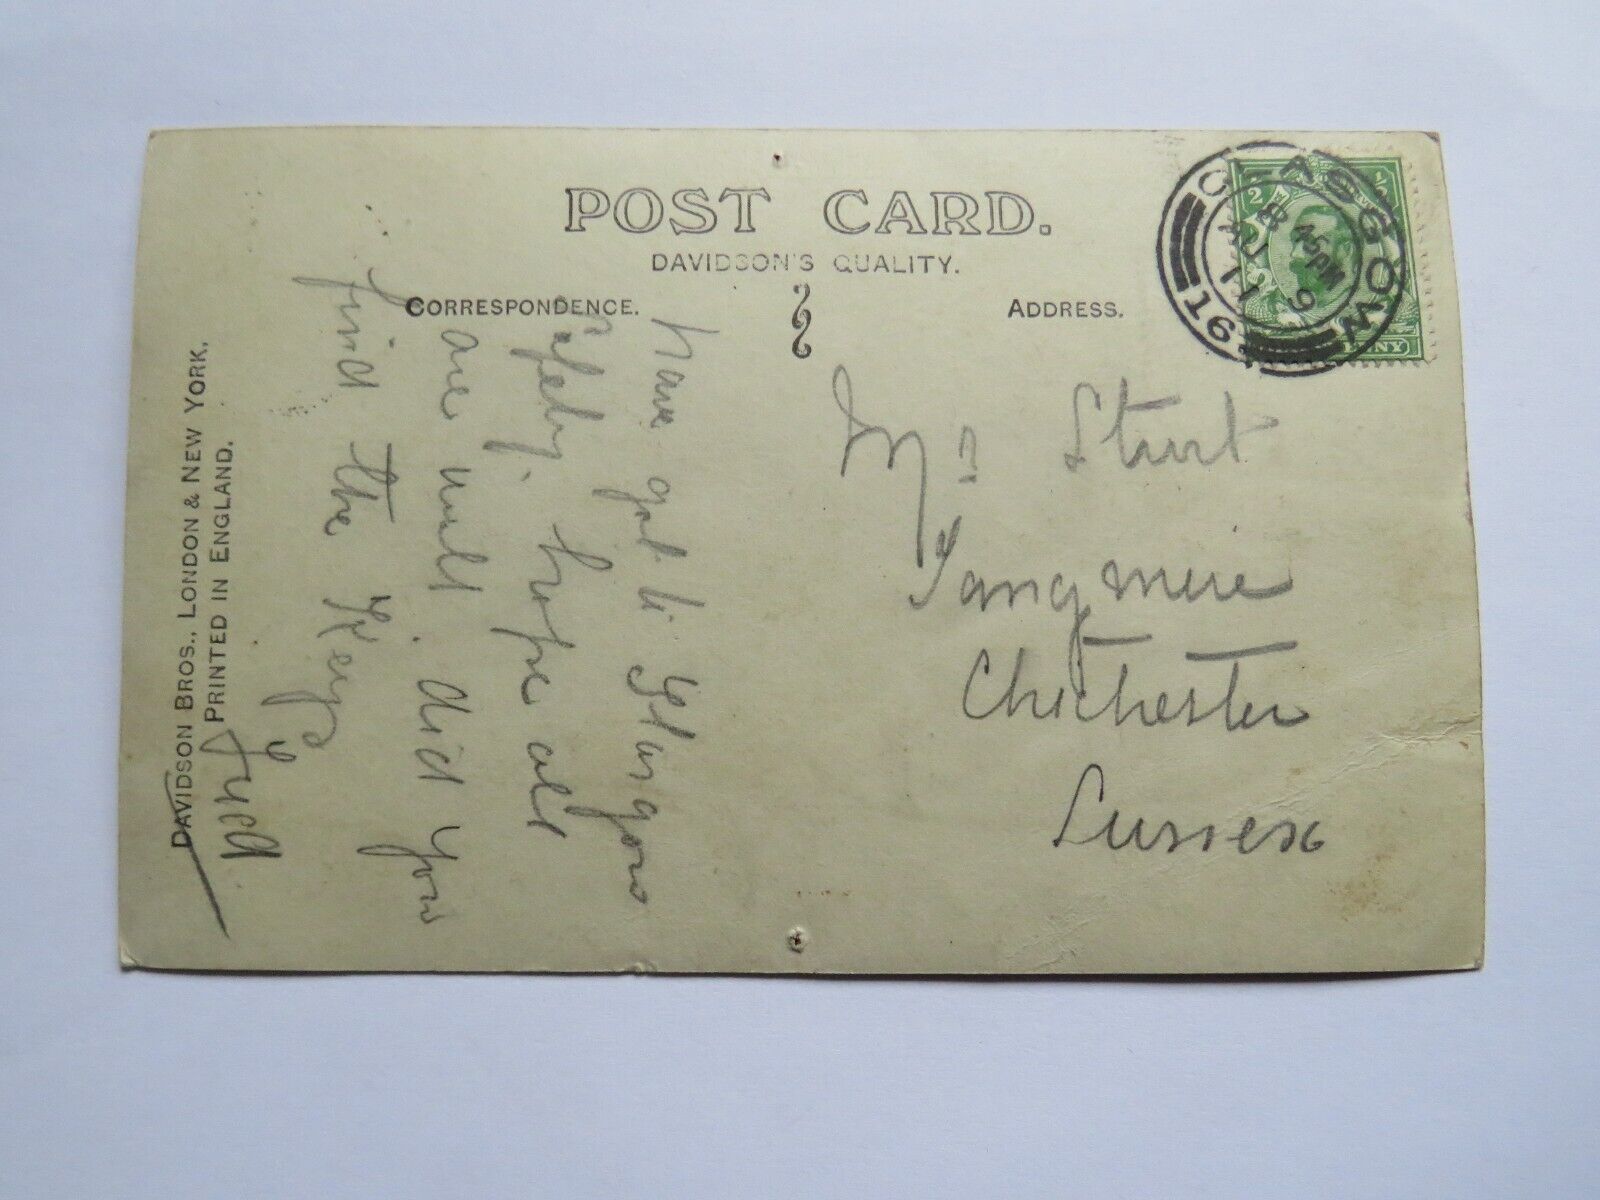 POST CARD.
DAVIDSON'S QUALITY.
CORRESPONDENCE.
ADDRESS.
GLASGOW
8 45 PM
AU 9
11
16
½ ½
PENNY
have got to Glasgow
safely, hope all
are well. did you
find the Keys
Fred
Mrs Sturt
Tangmere
Chichester
Sussex
DAVIDSON BROS., LONDON & NEW YORK.
PRINTED IN ENGLAND.